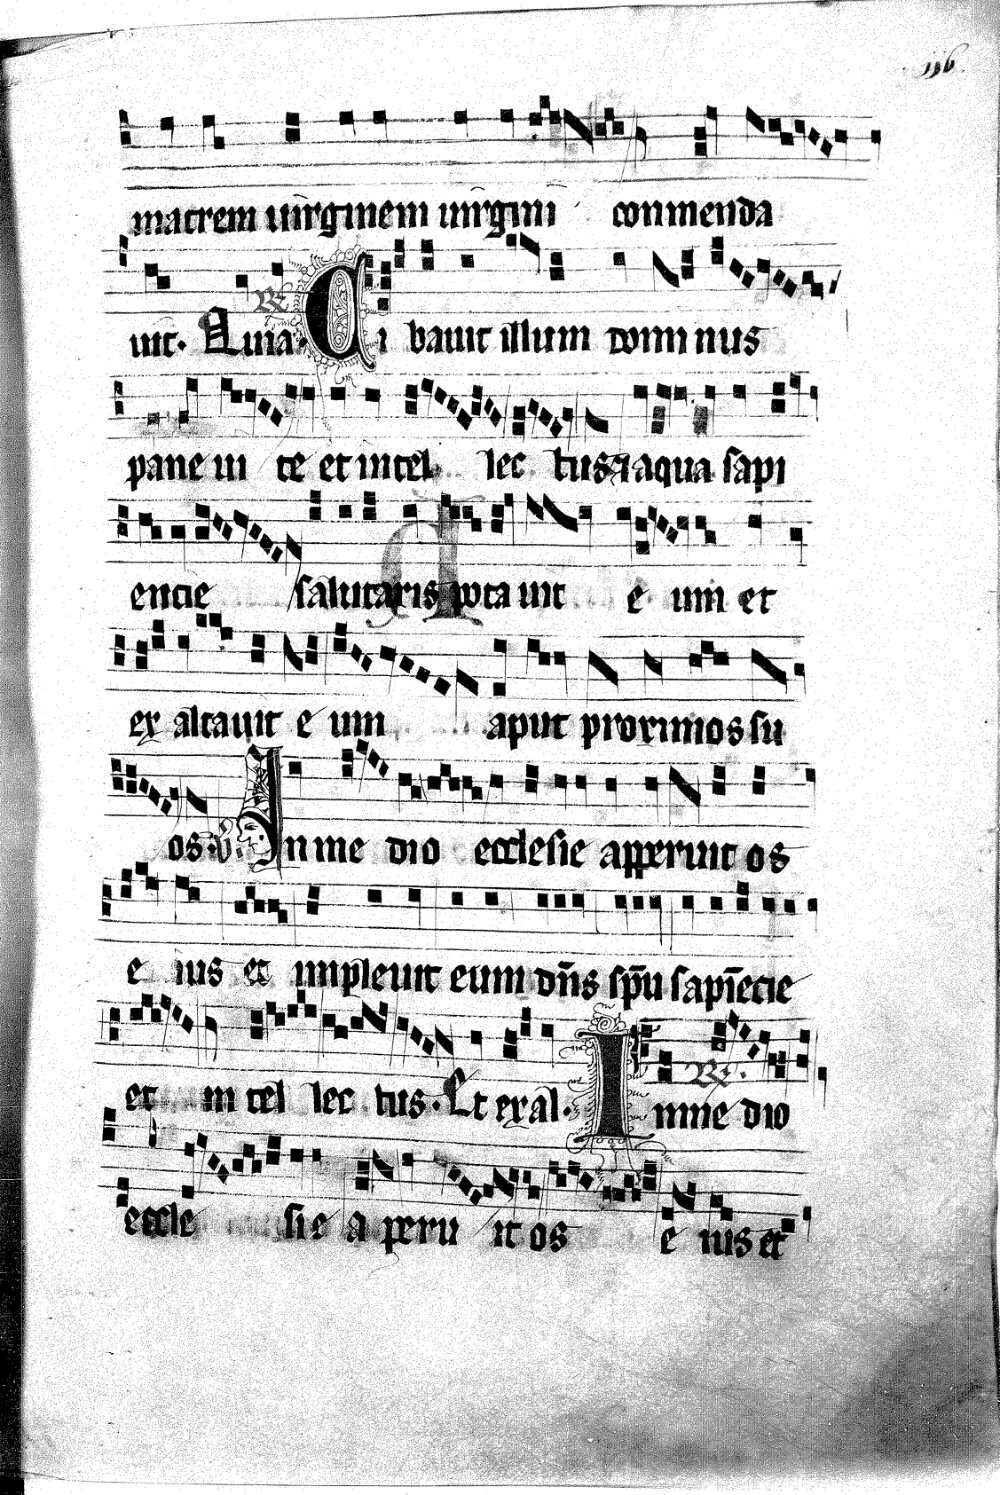 matrem uirginem uirgini commenda
uit. Aluia. ℟ Ci bauit illum domi nus
pane ui te et intel lec tus ⁊ aqua sapi
encie salutaris pota uit e um et
ex altauit e um aput proximos su
os. ℣. In me dio ecclesie apperuit os
e ius et impleuit eum dn̄s sp̄u sapīecie
et in tel lec tus. Et exal. In me dio ℟.
eccle si e a peru it os e ius et